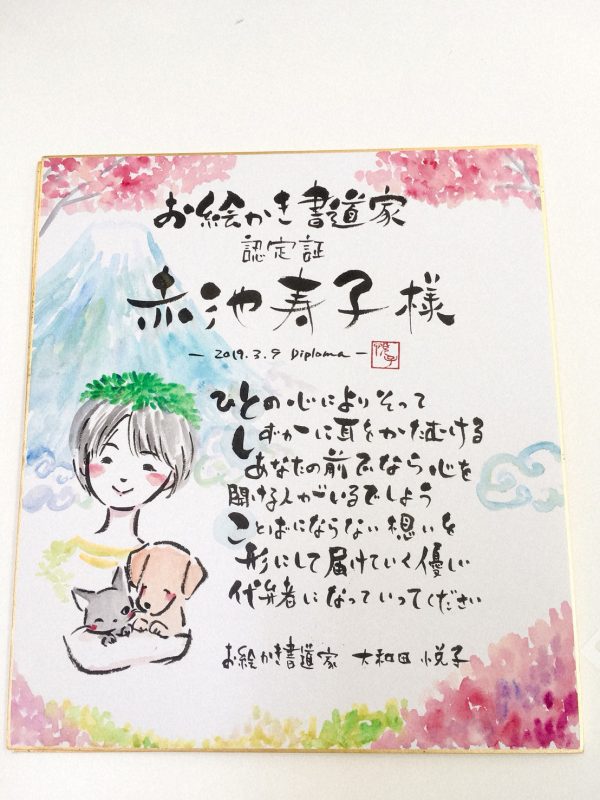 お絵かき書道家
認定証
赤池寿子様
- 2019.3.9 Diploma - 悦子
ひとの心によりそって
しずかに耳をかたむける
あなたの前でなら心を
開ける人がいるでしょう
ことばにならない想いを
形にして届けていく優しい
代弁者になっていってください
お絵かき書道家 大和田悦子